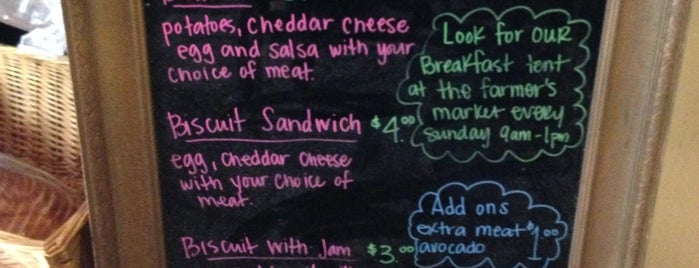 potatoes, cheddar cheese
egg and salsa with your
choice of meat.
Biscuit Sandwich $4.00
egg, cheddar cheese
with your choice of
meat.
Biscuit with Jam $3.00
Look for our
Breakfast tent
at the farmer's
market every
Sunday 9am-1pm
Add ons
extra meat $1.00
avocado